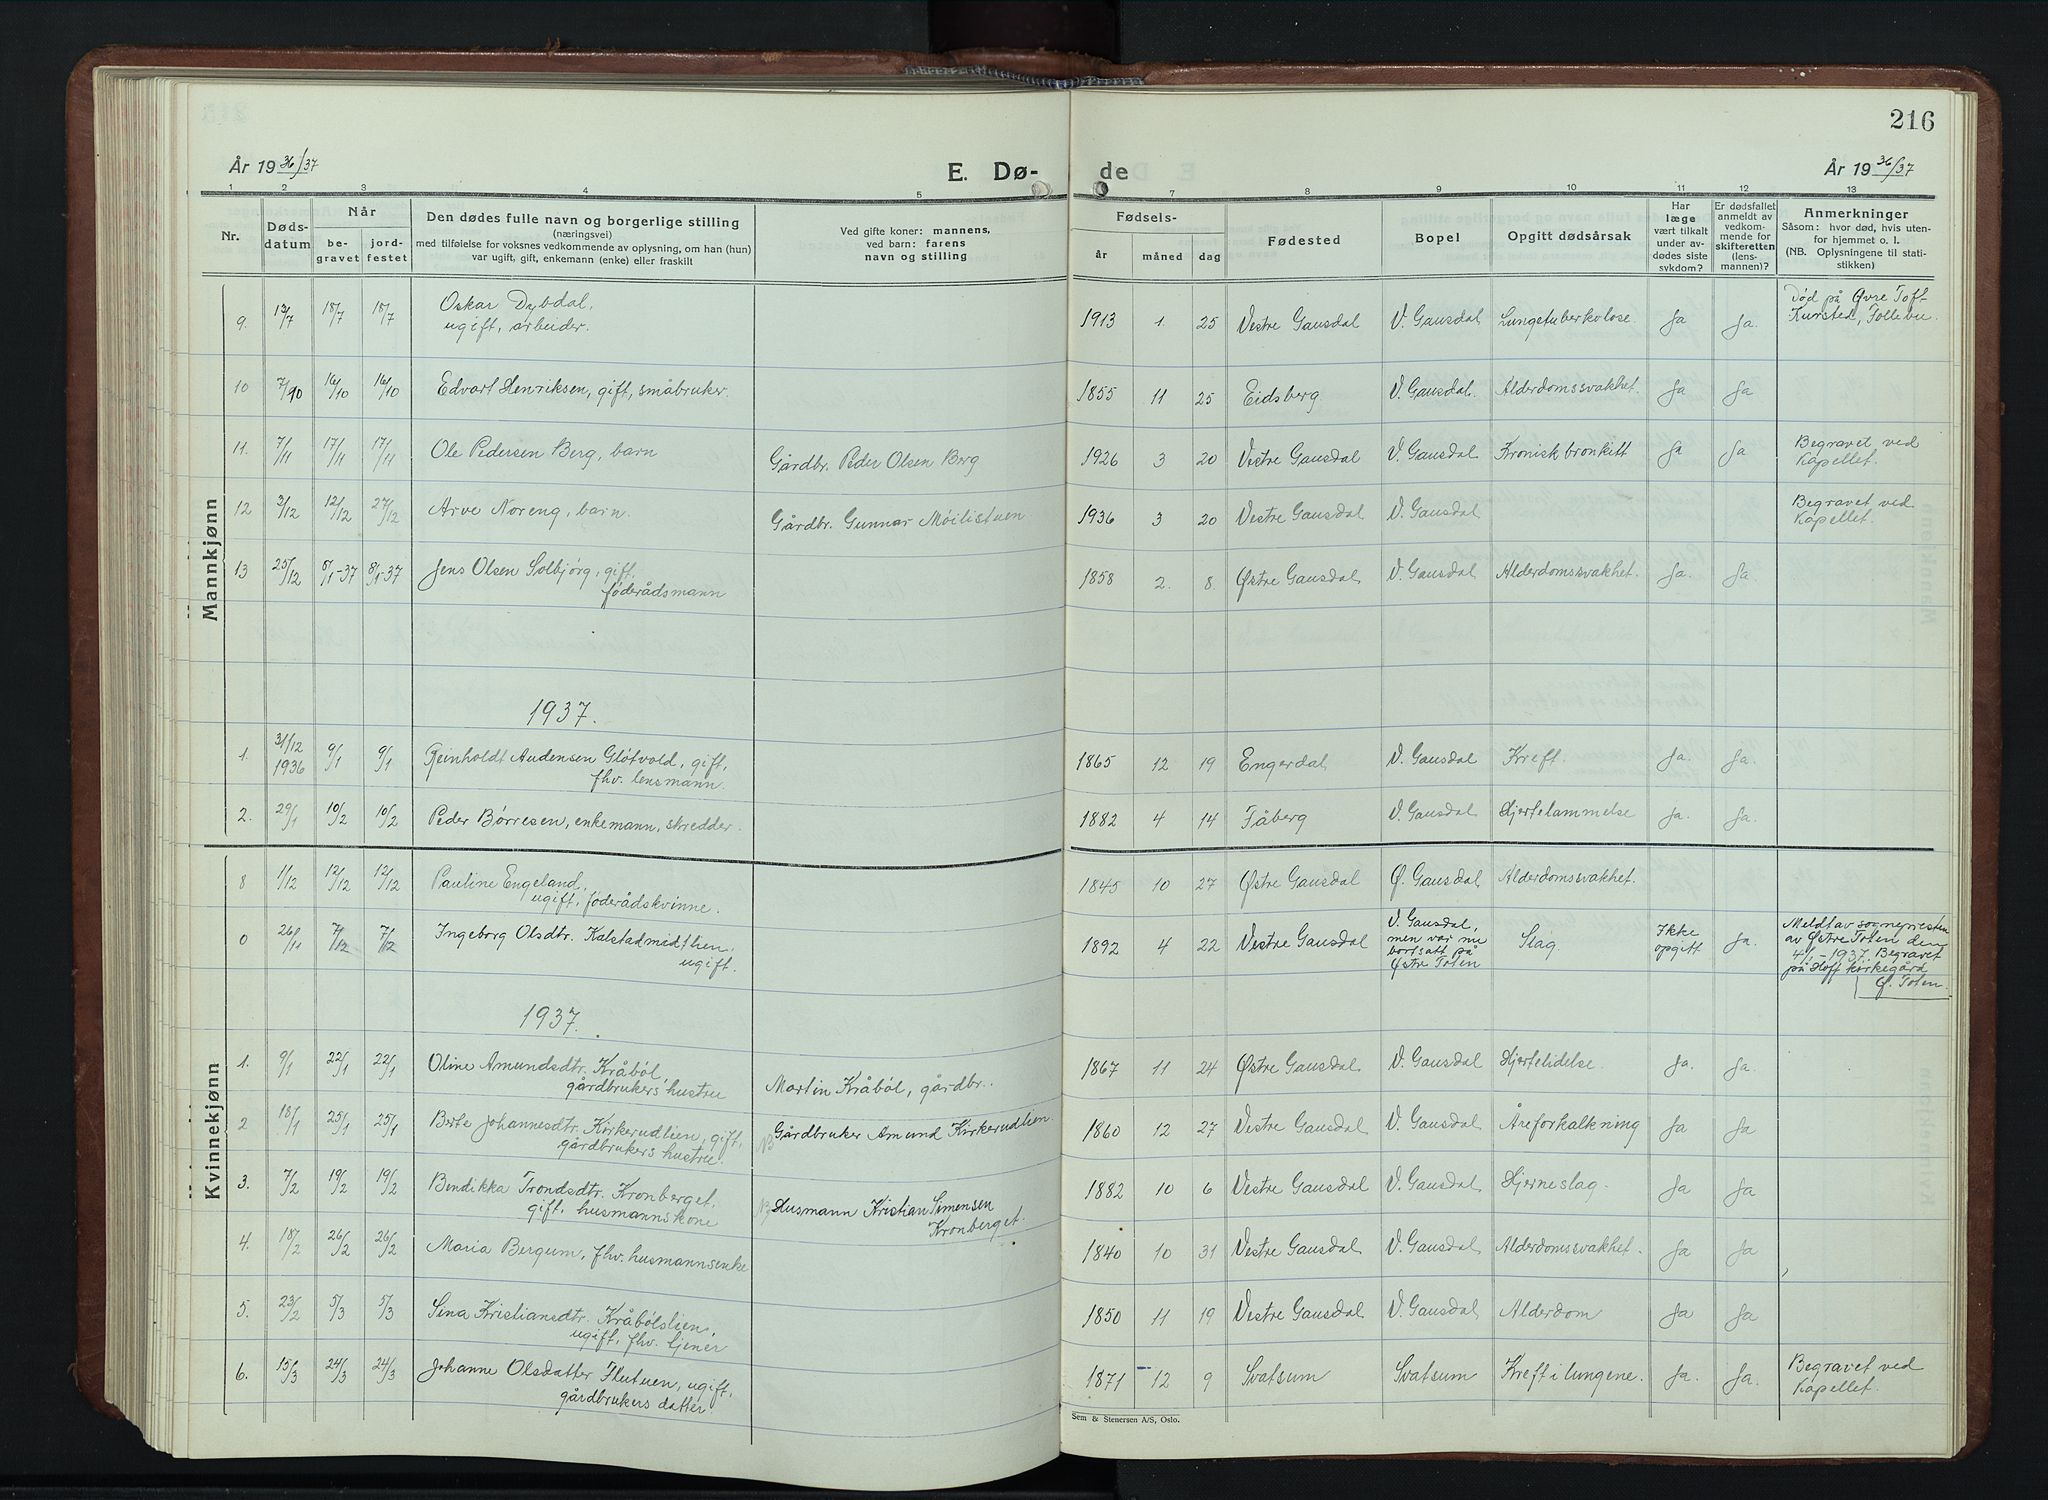 216
År 19 36/37
E. Dø-
de
År 19 36/37
1 2 3 4 5 7 8 9 10 11 12 13
Nr.
Døds-
datum
Når
be-
gravet
jord-
festet
Den dødes fulle navn og borgerlige stilling
(næringsvei)
med tilføielse for voksnes vedkommende av oplysning, om han (hun)
var ugift, gift, enkemann (enke) eller fraskilt
Ved gifte koner: mannens,
ved barn: farens
navn og stilling
Fødsels-
år måned dag
Fødested
Bopel
Opgitt dødsårsak
Har
læge
vært tilkalt
under av-
dødes siste
sykdom?
Er dødsfallet
anmeldt av
vedkom-
mende for
skifteretten
(lens-
mannen)?
Anmerkninger
Såsom: hvor død, hvis uten-
for hjemmet o. l.
(NB. Oplysningene til stati-
stikken)
Mannkjønn
9. 13/7 18/7 18/7 Oskar Dybdal,
ugift, arbeider.
1913 1. 25 Vestre Gausdal V. Gausdal Lungetuberkulose. Ja Ja. Død på Øvre Toft-
Kursted, Follebu.
10 7/10 16/10 16/10 Edvart Henriksen, gift, småbruker.
1855 11 25 Eidsberg V. Gausdal. Alderdomssvakhet. Ja Ja
11. 7/11 17/11 17/11 Ole Pedersen Berg, barn Gårdbr. Peder Olsen Berg
1926 3 20 Vestre Gausdal V. Gausdal Kronisk bronkitt Ja Ja Begravet ved
Kapellet.
12 3/12 12/12 27/12 Arve Noreng, barn. Gårdbr. Gunnar Møilistuen
1936 3 20 Vestre Gausdal V. Gausdal Begravet ved
Kapellet.
13 25/12 8/1-37 8/1-37 Jens Olsen Solbjørg, gift,
føderådsmann
1858 2. 8. Østre Gausdal V. Gausdal Alderdomssvakhet. Ja. Ja
1937.
1. 31/12
1936 9/1 9/1 Reinholdt Audensen Gløtvold, gift,
fhv. lensmann.
1865 12 19 Engerdal V. Gausdal Kreft. Ja. Ja.
2. 29/1 10/2 10/2 Peder Børresen, enkemann, skredder.
1882 4 14 Fåberg V. Gausdal Hjertelammelse Ja. Ja.
Kvinnekjønn
8 1/12 12/12 12/12 Pauline Engeland,
ugift, føderådskvinne.
1845 10 27 Østre Gausdal Ø. Gausdal Alderdomssvakhet.
0 26/11 7/12 7/12 Ingeborg Olsdtr. Kalstadmidtlien,
ugift.
1892 4 22 Vestre Gausdal V. Gausdal,
men var nu
bortsatt på
Østre Toten Slag Ikke
opgitt Ja. Meldt av sognepresten
av Østre Toten den
4/1-1937. Begravet
på Hoff kirkegård
Ø. Toten.
1937.
1. 9/1 22/1 22/1 Oline Amundsdtr. Kråbøl,
gårdbrukers hustru Martin Kråbøl, gårdbr.
1867 11 24 Østre Gausdal V. Gausdal Hjertelidelse. Ja. Ja.
2 18/1 25/1 25/1 Berte Johannesdtr. Kirkerudlien, gift,
gårdbrukers hustru. Gårdbruker Amund Kirkerudlien.
1860 12 27 Vestre Gausdal V. Gausdal Åreforkalkning Ja Ja
3. 7/2 19/2 19/2 Bendikka Trondsdtr. Kronberget,
gift, husmannskone Husmann Kristian Simensen
Kronberget.
1882 10 6 Vestre Gausdal V. Gausdal Hjerneslag. Ja Ja
4. 18/2 26/2 26/2 Maria Bergum, fhv. husmannsenke
1840 10 31 Vestre Gausdal V. Gausdal Alderdomssvakhet. Ja Ja
5. 23/2 5/3 5/3 Sina Kristiansdtr. Kråbølslien,
ugift, fhv. tjener
1850 11 19 Vestre Gausdal V. Gausdal Alderdom Ja Ja
6. 15/3 24/3 24/3 Johanne Olsdatter Flutuen, ugift,
gårdbrukers datter.
1871 12 9 Svatsum Svatsum Kreft i lungene. Ja. Ja. Begravet ved
Kapellet.
Sem & Stenersen A/S, Oslo.